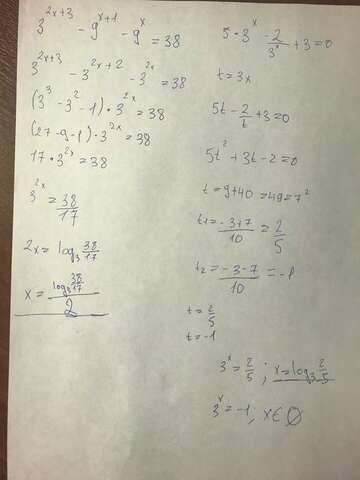 3^{2x+3} - 9^{x+1} - 9^x = 38
3^{2x+3} - 3^{2x+2} - 3^{2x} = 38
(3^3 - 3^2 - 1) · 3^{2x} = 38
(27 - 9 - 1) · 3^{2x} = 38
17 · 3^{2x} = 38
3^{2x} = 38/17
2x = log_3 38/17
x = (log_3 38/17)/2
5 · 3^x - 2/3^x + 3 = 0
t = 3x
5t - 2/t + 3 = 0
5t^2 + 3t - 2 = 0
t = 9 + 40 = 49 = 7^2
t_1 = (-3+7)/10 = 2/5
t_2 = (-3-7)/10 = -1
t = 2/5
t = -1
3^x = 2/5 ; x = log_3 2/5
3^x = -1 ; x ∈ ∅